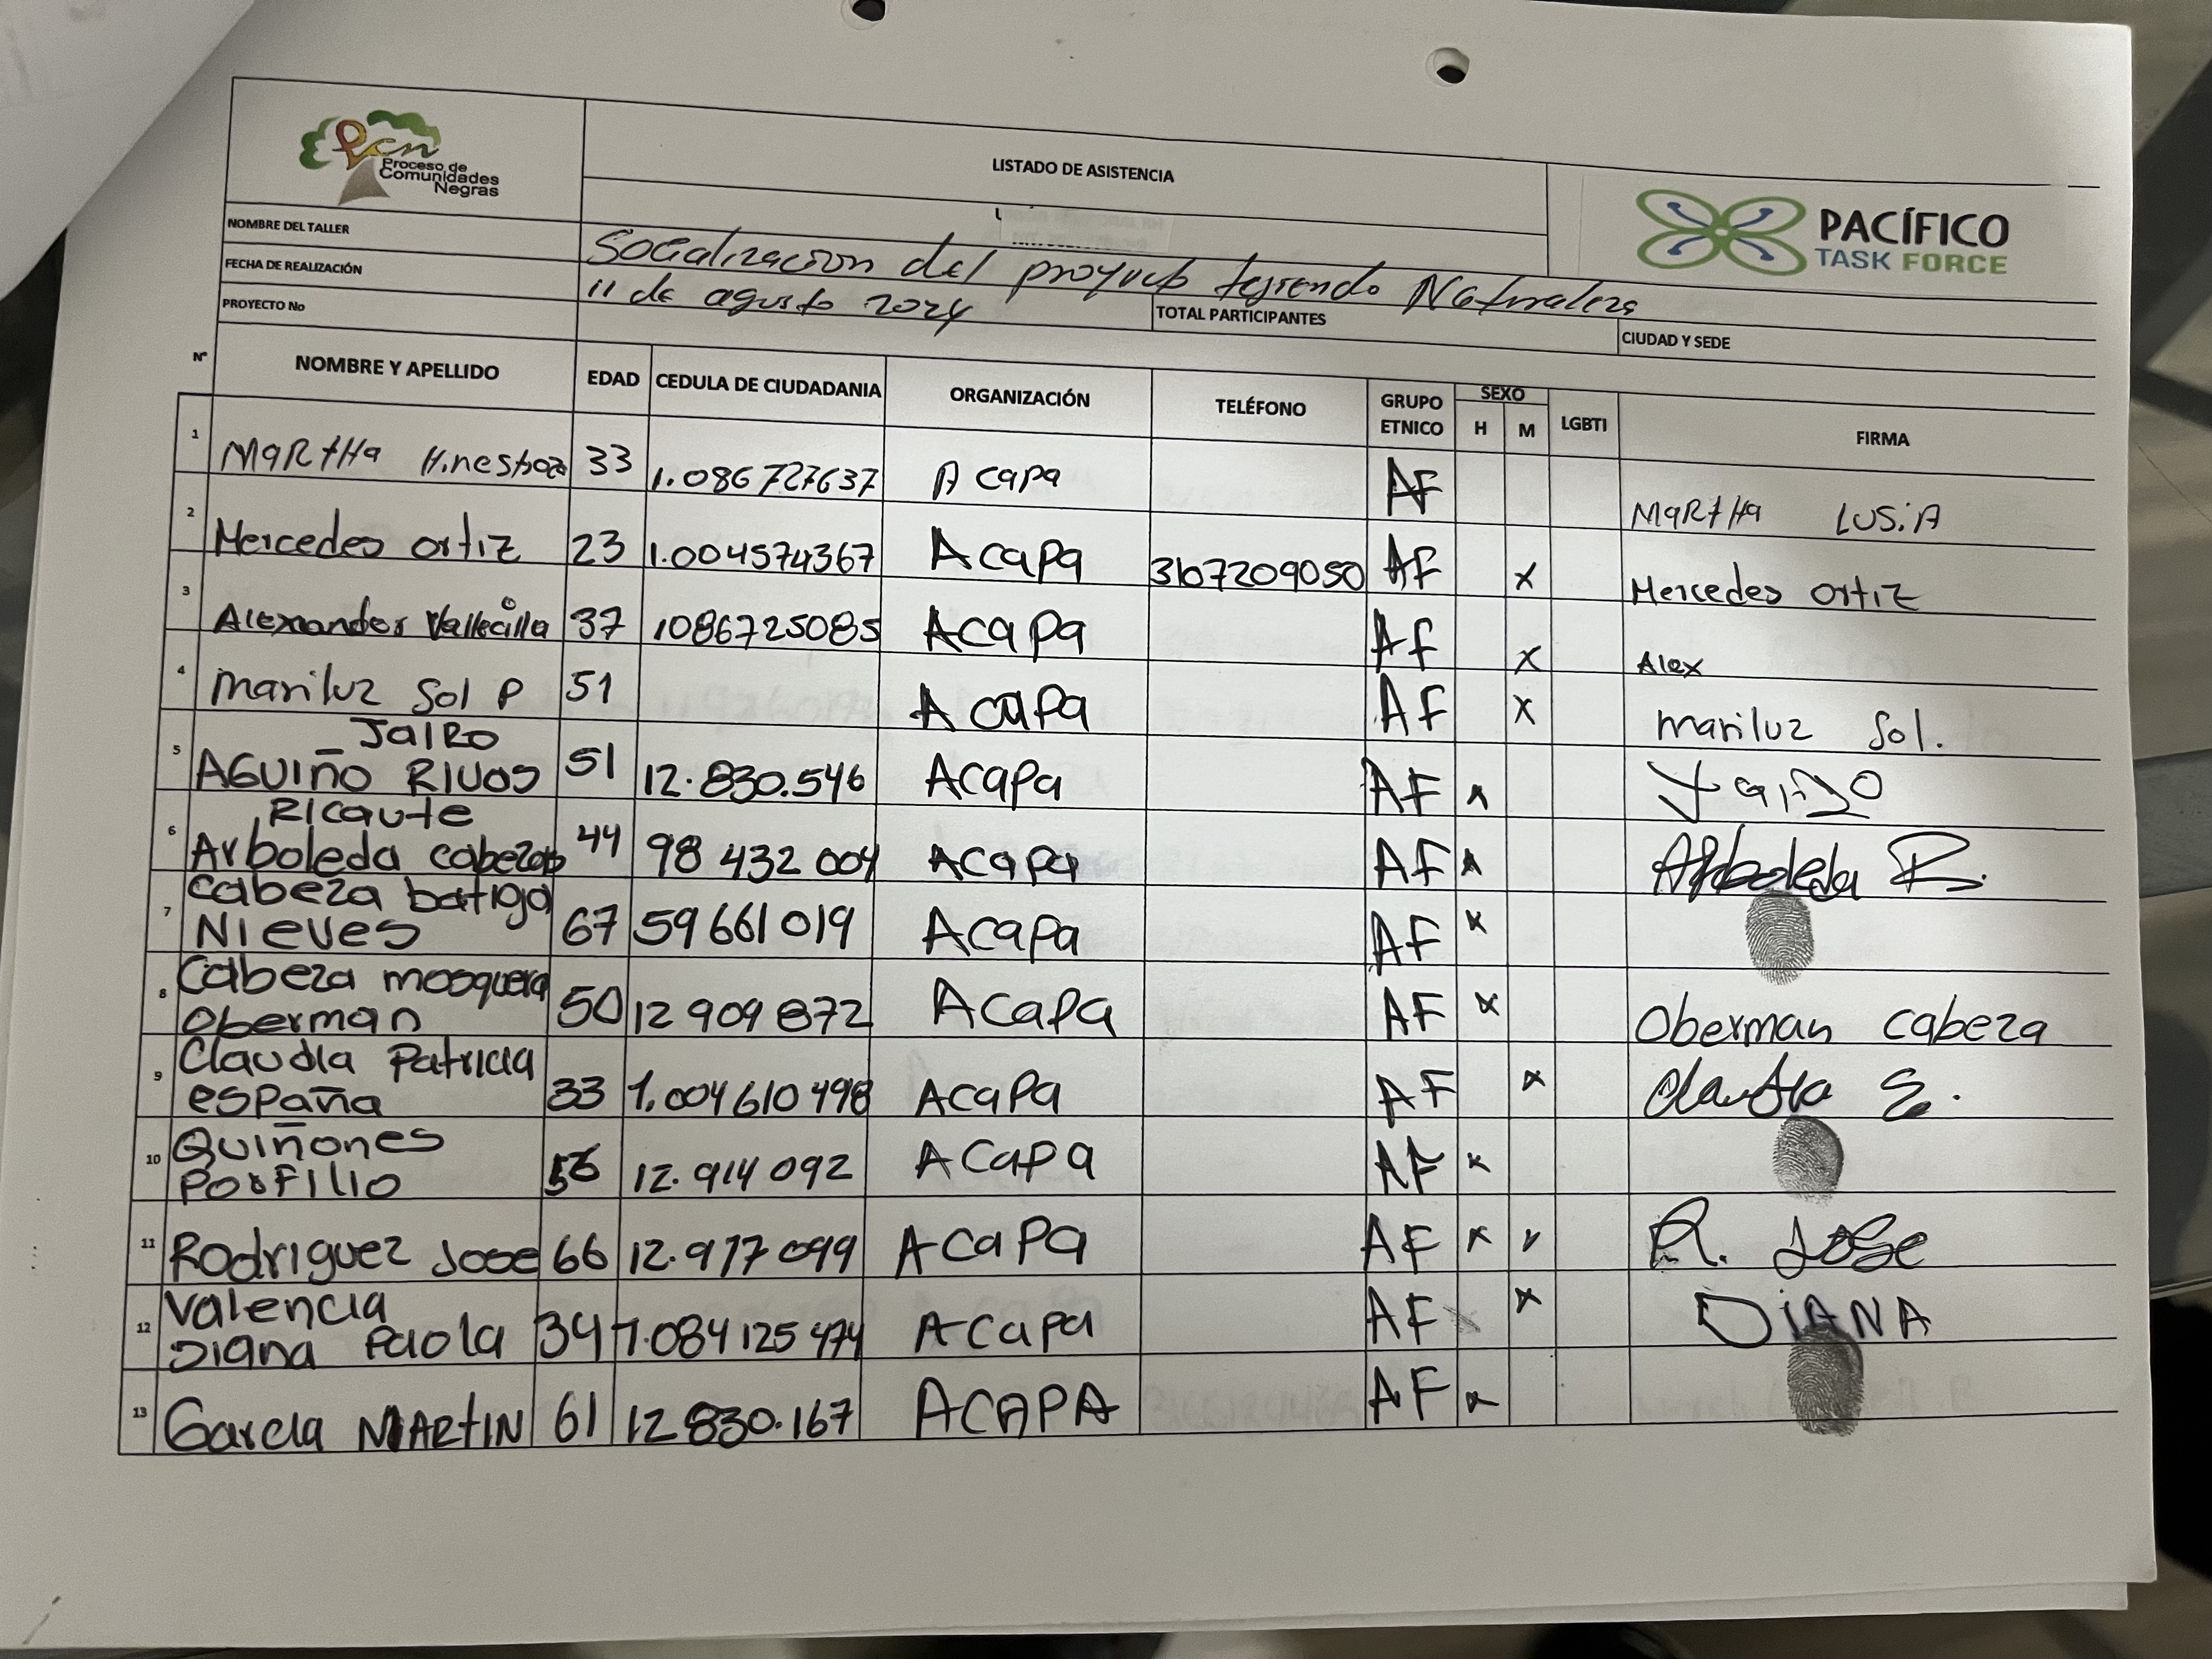 Pcn
Proceso de
Comunidades
Negras
LISTADO DE ASISTENCIA
PACÍFICO
TASK FORCE
NOMBRE DEL TALLER Socialización del proyecto tejiendo Naturaleza
FECHA DE REALIZACIÓN 11 de agusto 2024
PROYECTO No TOTAL PARTICIPANTES CIUDAD Y SEDE
N° NOMBRE Y APELLIDO EDAD CEDULA DE CIUDADANIA ORGANIZACIÓN TELÉFONO GRUPO ETNICO SEXO H M LGBTI FIRMA
1 MARtHa Hinestroza 33 1.086727637 Acapa AF MARtHa LUSiA
2 Mercedes ortiz 23 1.004574367 Acapa 3107209050 AF x Mercedes ortiz
3 Alexander Vallecilla 37 1086725085 Acapa Af x Alex
4 mariluz Sol P 51 Acapa AF x mariluz Sol.
5 JaIRO
AGUIÑO RIVOS 51 12.830.546 Acapa AF x
6 Ricaute
Arboleda cabezas 44 98 432 004 Acapa AF x Arboleda R.
7 cabeza batioja
Nieves 67 59661019 Acapa AF x
8 Cabeza mosquera
Oberman 50 12 909 872 Acapa AF x Oberman cabeza
9 Claudia Patricia
españa 33 1.004610498 Acapa AF x Claudia E.
10 Quiñones
Porfilio 56 12.914 092 Acapa AF x
11 Rodriguez Jose 66 12.977 099 Acapa AF x x R. Jose
12 Valencia
Diana Paola 34 1.084125474 Acapa AF x DiANA
13 Garcia MARTIN 61 12 830.167 ACAPA AF x